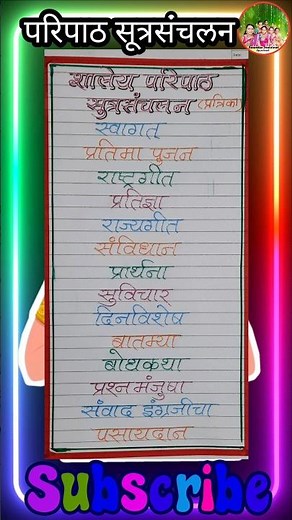 परिपाठ सूत्रसंचलन
शालेय परिपाठ
सुत्रसंचलन (प्रत्रिका)
स्वागत
प्रतिमा पुजन
राष्ट्रगीत
प्रतिज्ञा
राज्यगीत
संविधान
प्रार्थना
सुविचार
दिनविशेष
बातम्या
बोधकथा
प्रश्न मंजुषा
संवाद इंग्रजीचा
पसायदान
Subscribe